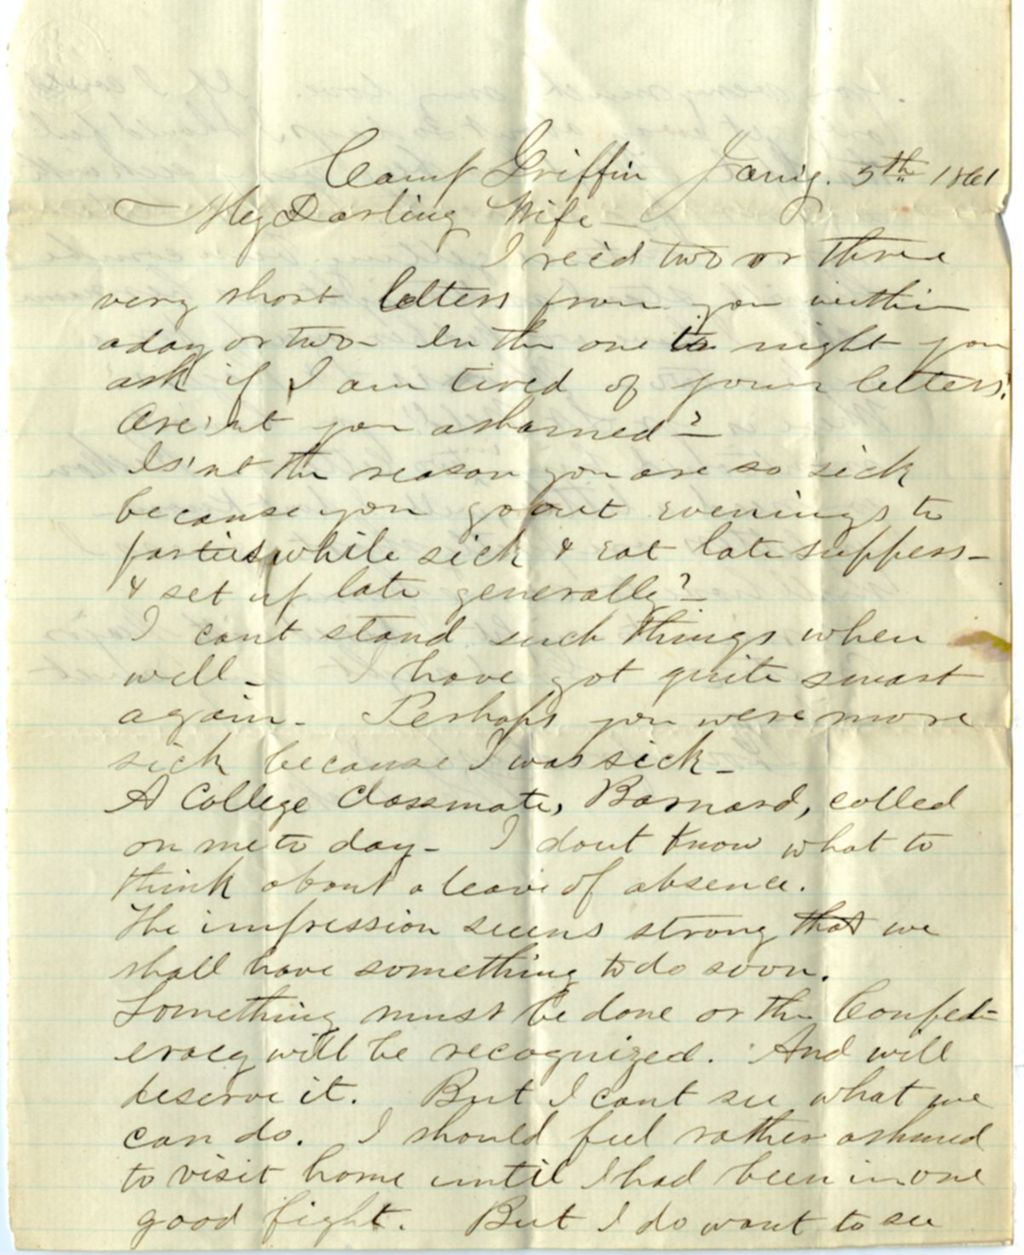 Camp Griffin Jany. 5th 1861
My Darling Wife
I rec'd two or three
very short letters from you within
a day or two In the one to night you
ask if I am tired of your letters!
Are'nt you ashamed?
Is'nt the reason you are so sick
because you go out evenings to
parties while sick & eat late suppers -
& set up late generally?
I cant stand such things when
well - I have got quite smart
again - Perhaps you were more
sick because I was sick -
A College Classmate, Barnard, called
on me to day - I dont know what to
think about a leave of absence.
The impression seems strong that we
shall have something to do soon.
Something must be done or the Confed-
eracy will be recognized. And will
deserve it. But I cant see what we
can do. I should feel rather ashmed
to visit home until I had been in one
good fight. But I do want to see